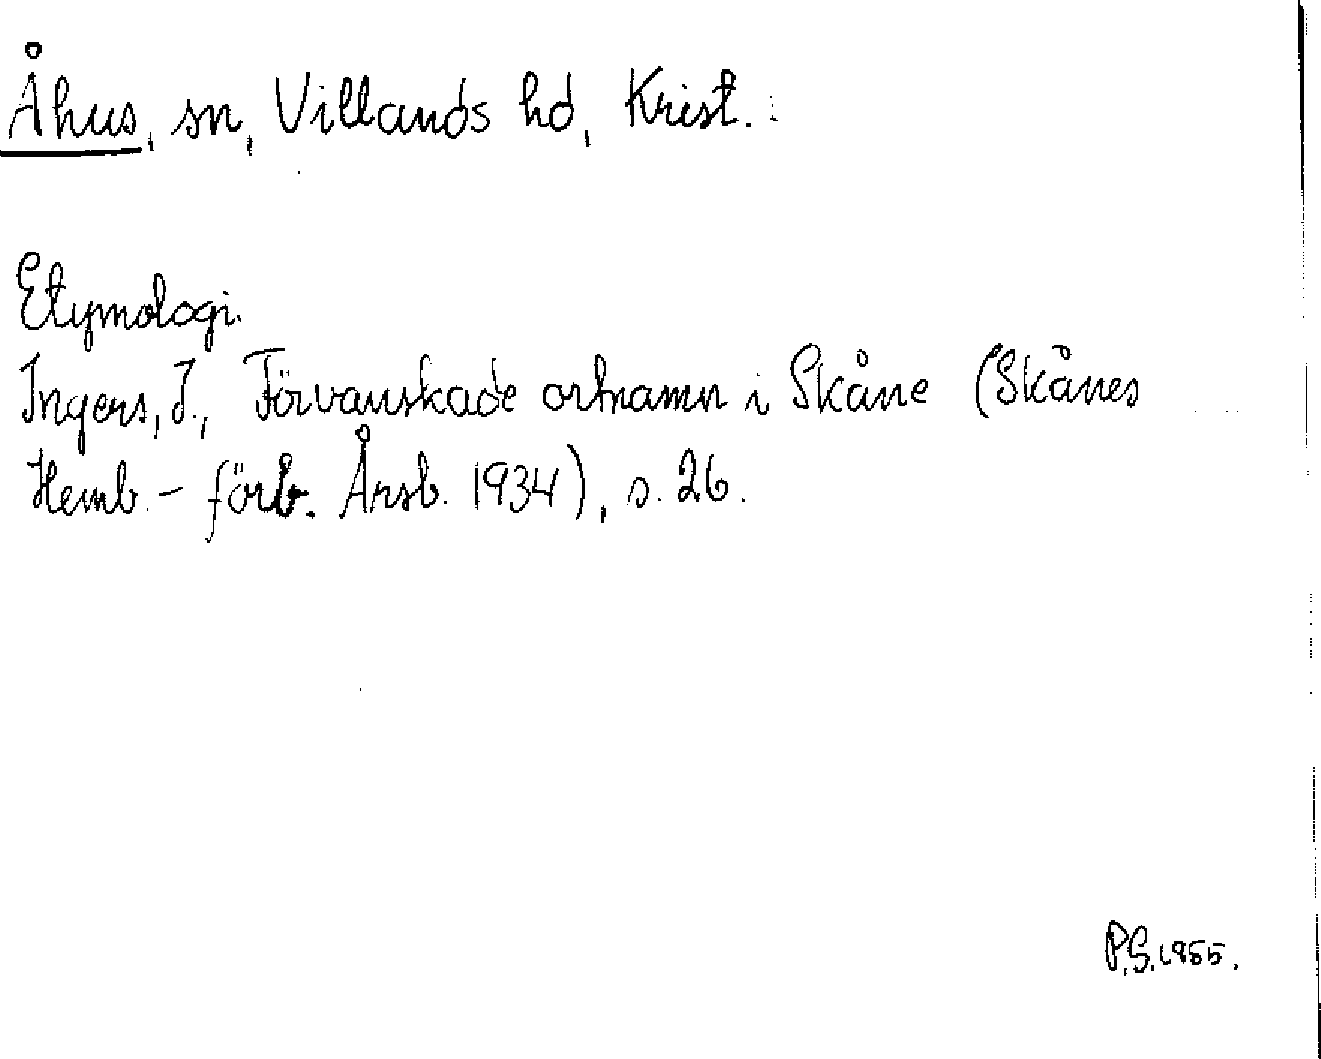 Åhus, sn, Villands hd, Krist.
Etymologi.
Ingers, I., Förvanskade ortnamn i Skåne (Skånes
Hemb.-förb. Årsb. 1934), s. 26.
P.S. 1955.